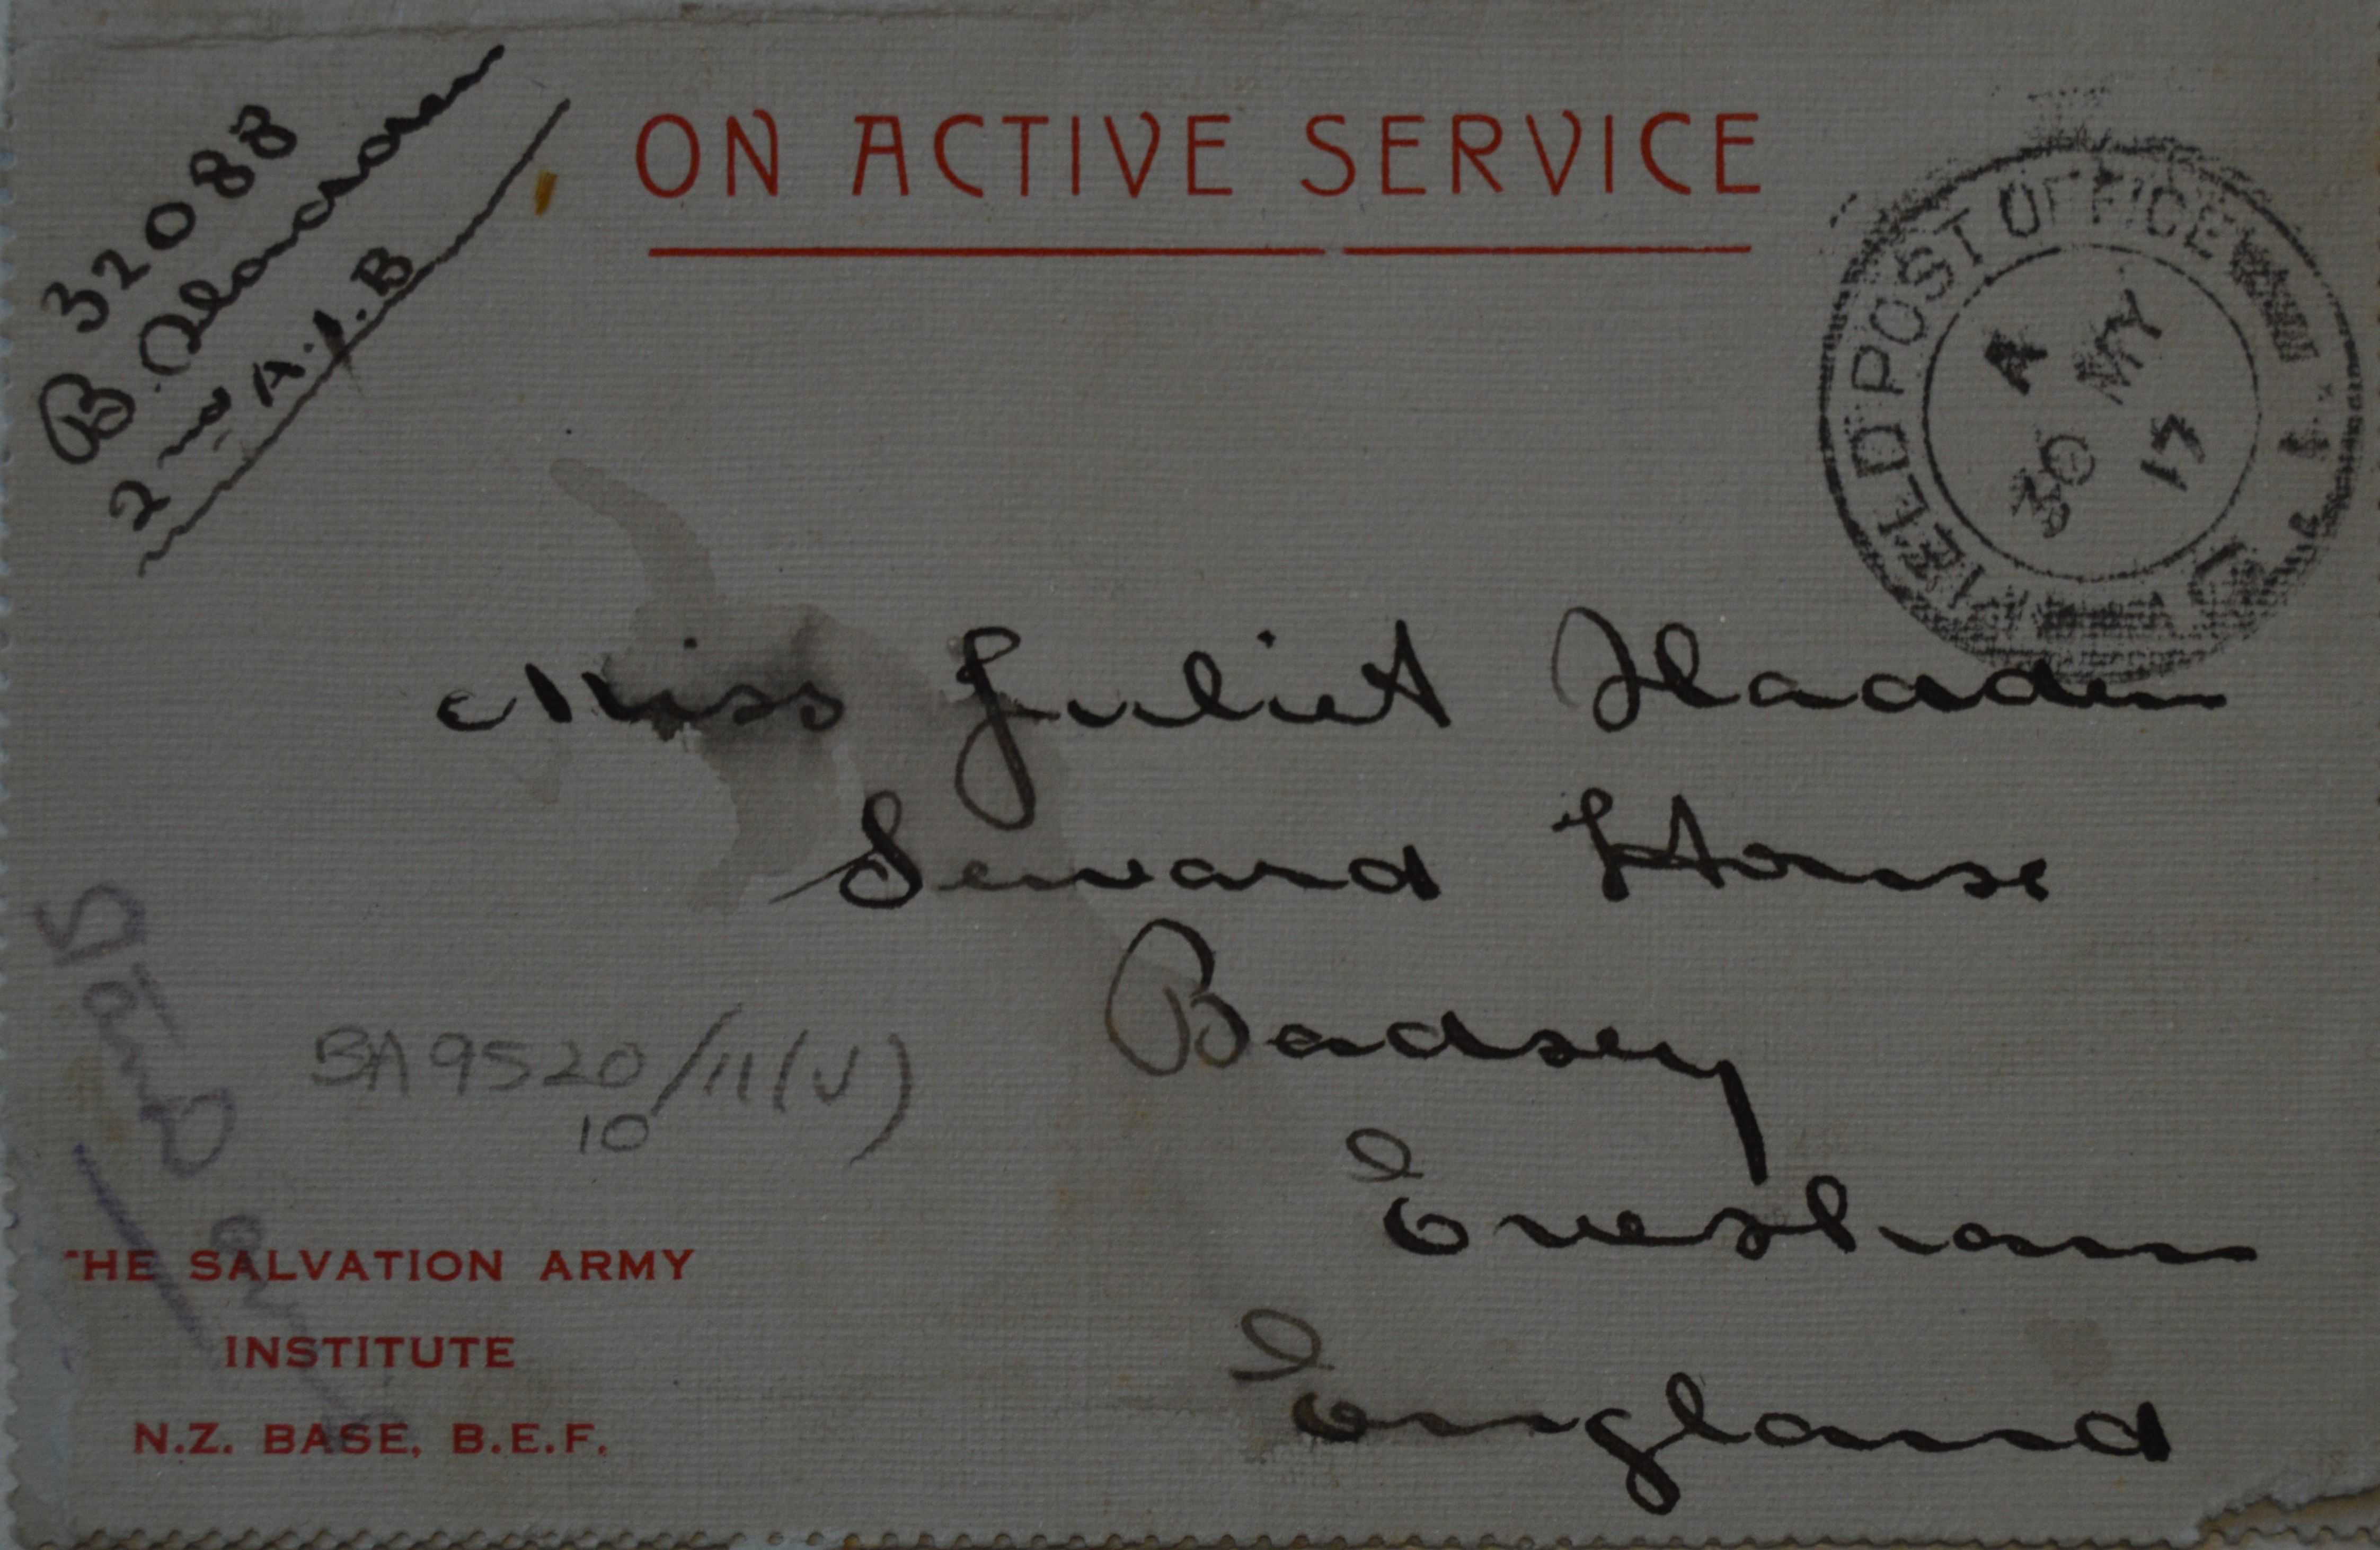 32088
B.
2nd A.I.B
ON ACTIVE SERVICE
FIELD POST OFFICE
A
30 MY
17
Miss Juliet
Seward House
Badsey
Evesham
England
BA9520/11(V)
10
THE SALVATION ARMY
INSTITUTE
N.Z. BASE, B.E.F.